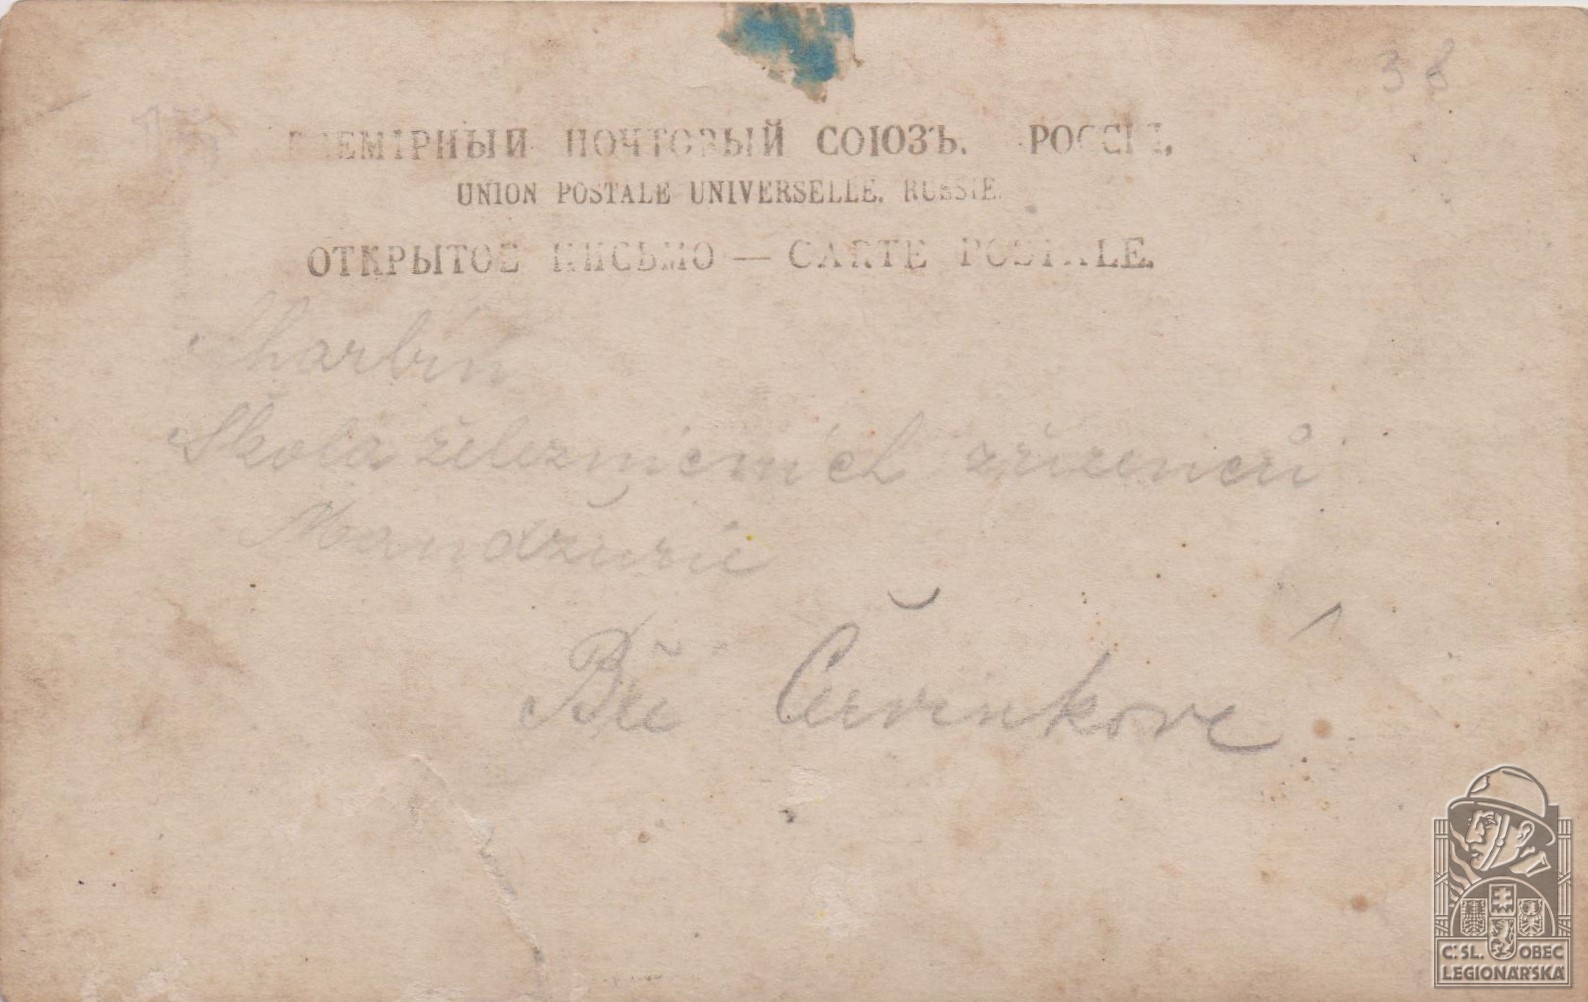 38
15
ВСЕМІРНЫЙ ПОЧТОВЫЙ СОЮЗЪ. РОССІЯ.
UNION POSTALE UNIVERSELLE. RUSSIE.
ОТКРЫТОЕ ПИСЬМО — CARTE POSTALE.
Charbin
Škola železničních zřízenců
Mandžurie
Bří Červinkové
Č.SL. OBEC
LEGIONÁŘSKÁ